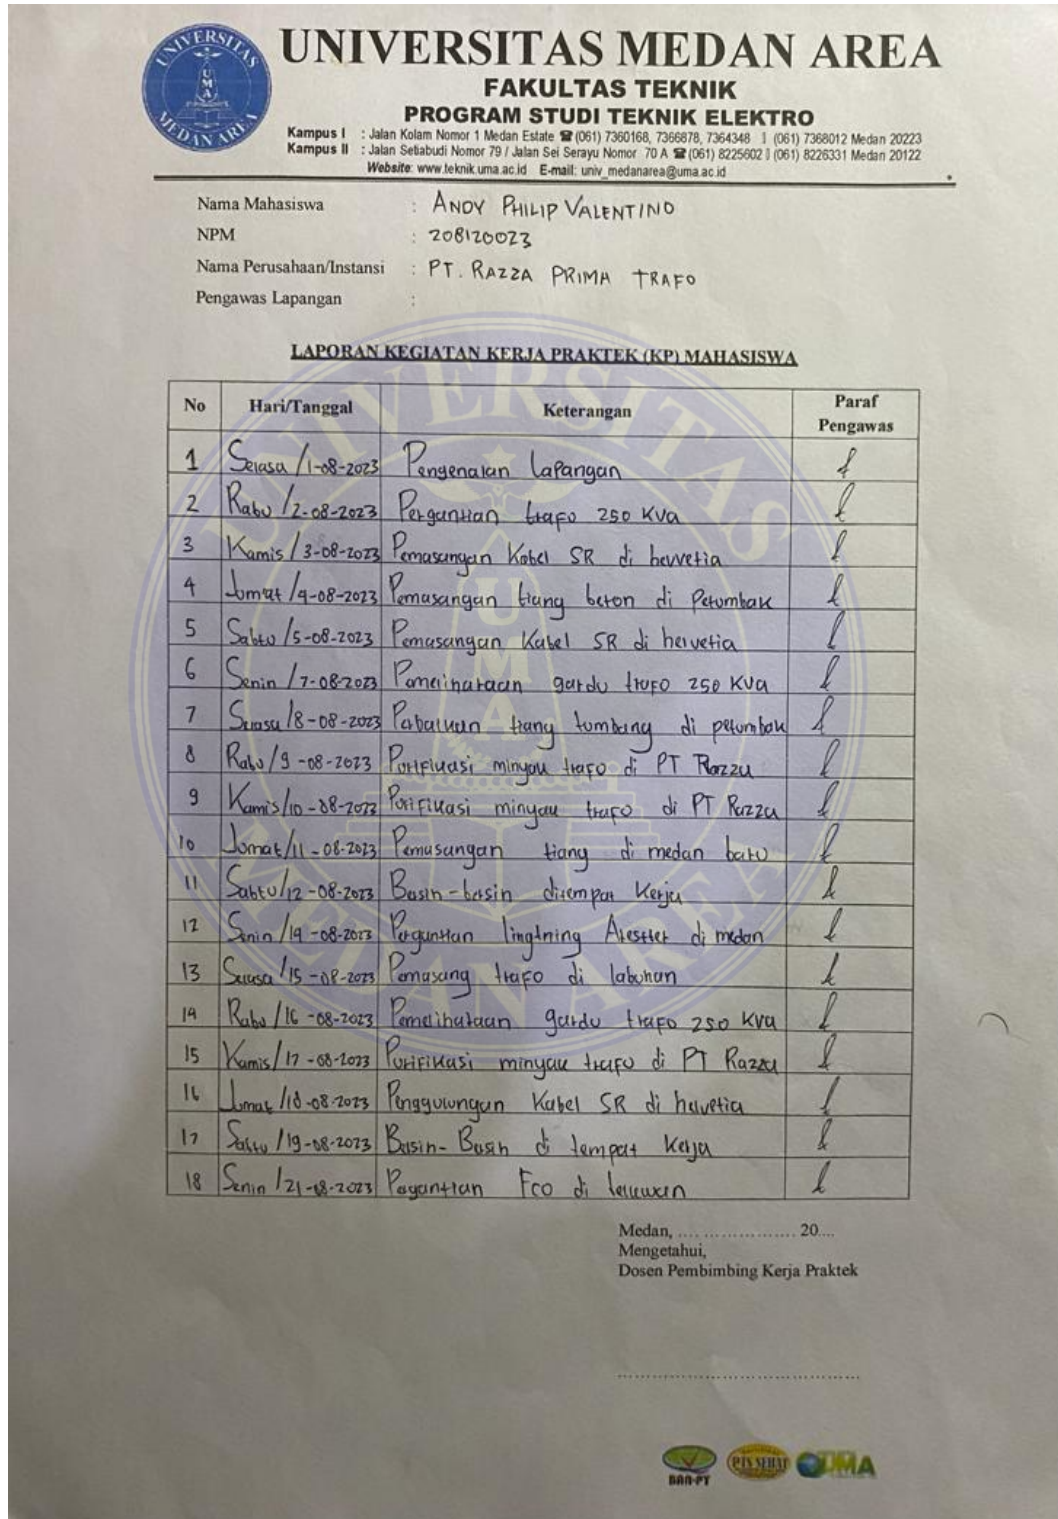 UNIVERSITAS MEDAN AREA
FAKULTAS TEKNIK
PROGRAM STUDI TEKNIK ELEKTRO
Kampus I : Jalan Kolam Nomor 1 Medan Estate ☎ (061) 7360168, 7366878, 7364348 (061) 7368012 Medan 20223
Kampus II : Jalan Setiabudi Nomor 79 / Jalan Sei Serayu Nomor 70 A ☎ (061) 8225602 (061) 8226331 Medan 20122
Website: www.teknik.uma.ac.id E-mail: univ_medanarea@uma.ac.id
UNIVERSITAS
UMA
MEDAN AREA
Nama Mahasiswa : ANDY PHILIP VALENTINO
NPM : 208120023
Nama Perusahaan/Instansi : PT. RAZZA PRIMA TRAFO
Pengawas Lapangan :
LAPORAN KEGIATAN KERJA PRAKTEK (KP) MAHASISWA
No Hari/Tanggal Keterangan Paraf Pengawas
1 Selasa /1-08-2023 Pengenalan Lapangan
2 Rabu /2-08-2023 Pergantian trafo 250 KVa
3 Kamis /3-08-2023 Pemasangan Kabel SR di helvetia
4 Jumat /4-08-2023 Pemasangan tiang beton di Petumbak
5 Sabtu /5-08-2023 Pemasangan Kabel SR di helvetia
6 Senin /7-08-2023 Pemeliharaan gardu trafo 250 KVa
7 Selasa /8-08-2023 Perbaikan tiang tumbang di petumbak
8 Rabu /9-08-2023 Purifikasi minyak trafo di PT Razza
9 Kamis /10-08-2023 Purifikasi minyak trafo di PT Razza
10 Jumat /11-08-2023 Pemasangan tiang di medan baru
11 Sabtu /12-08-2023 Bersih-bersih ditempat Kerja
12 Senin /14-08-2023 Pergantian lingtning Arestter di medan
13 Selasa /15-08-2023 Pemasang trafo di labuhan
14 Rabu /16-08-2023 Pemeliharaan gardu trafo 250 KVa
15 Kamis /17-08-2023 Purifikasi minyak trafo di PT Razza
16 Jumat /18-08-2023 Penggulungan Kabel SR di helvetia
17 Sabtu /19-08-2023 Bersih-Bersih di tempat Kerja
18 Senin /21-08-2023 Pergantian Fco di
Medan, .... .................. 20....
Mengetahui,
Dosen Pembimbing Kerja Praktek
BAN-PT PTS SEHAT UMA